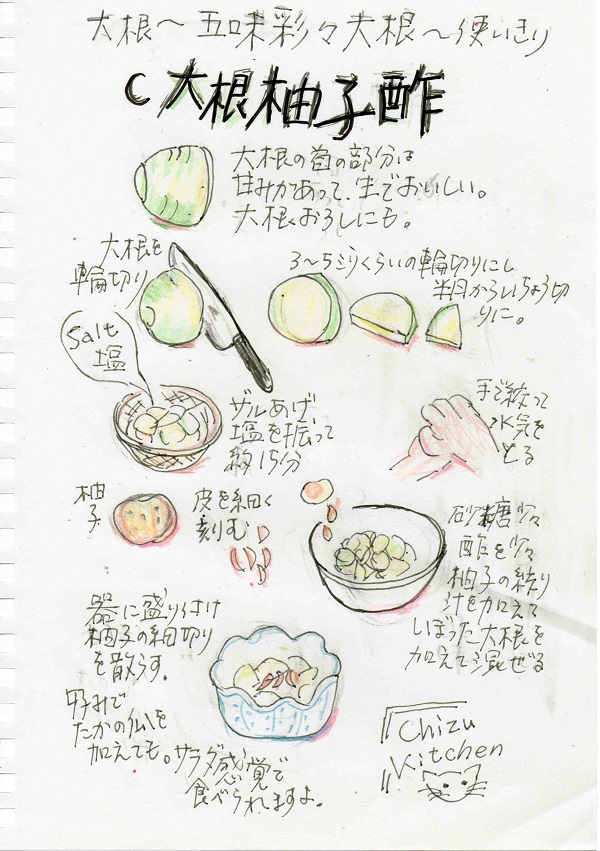 大根〜五味彩々大根〜使いきり
C 大根柚子酢
大根の首の部分は
甘みがあって、生でおいしい。
大根おろしにも。
大根を
輪切り
3〜5ミリくらいの輪切りにし
半月からいちょう切
りに。
Salt
塩
ザルあげ
塩を振って
約15分
手で絞って
水気を
とる
柚子
皮を細く
刻む
砂糖少々
酢を少々
柚子の絞り
汁を加えて
しぼった大根を
加えて混ぜる
器に盛り付け
柚子の細切り
を散らす。
好みで
たかの仏を
加えても。サラダ感覚で
食べられますよ。
Chizu
Kitchen